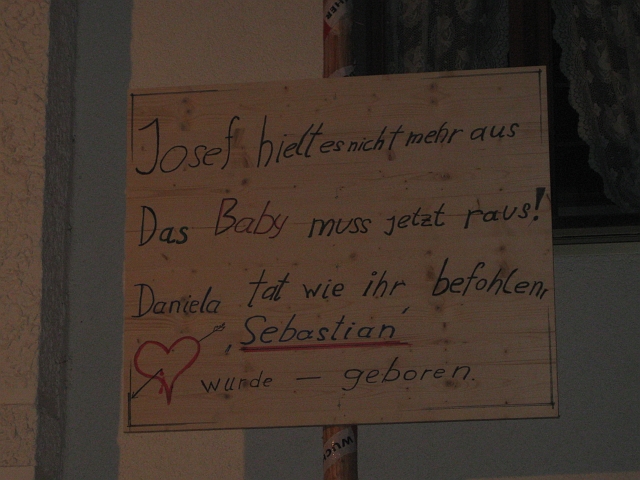 Josef hielt es nicht mehr aus
Das Baby muss jetzt raus!
Daniela tat wie ihr befohlen,
,Sebastian'
wurde — geboren.